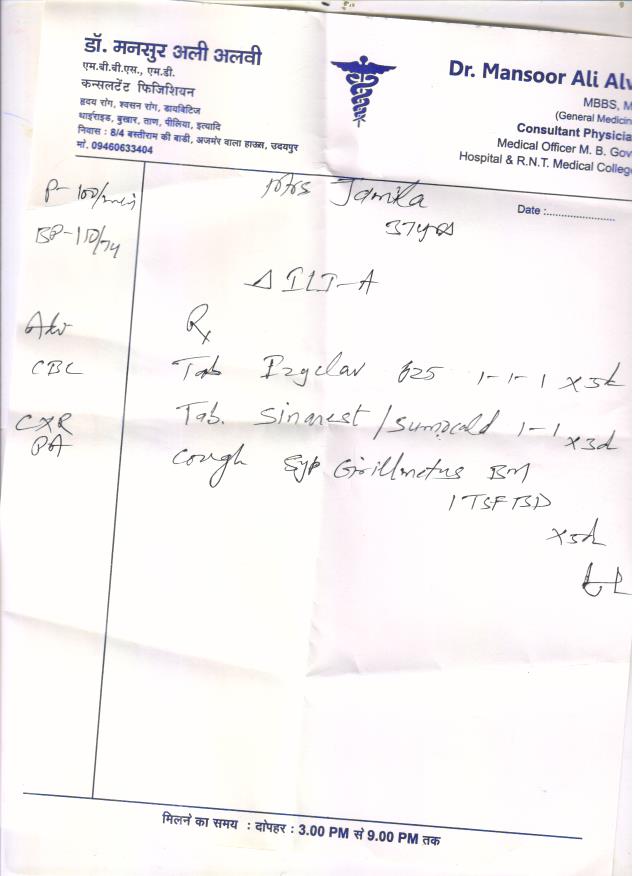 डॉ. मनसुर अली अलवी
एम.बी.बी.एस., एम.डी.
कन्सलटेंट फिजिशियन
हृदय रोग, श्वसन रोग, डायबिटिज
थाईराइड, बुखार, ताण, पीलिया, इत्यादि
निवास : 8/4 बस्तीराम की बाडी, अजमेर वाला हाऊस, उदयपुर
मो. 09460633404
Dr. Mansoor Ali Alv
MBBS, M
(General Medicin
Consultant Physicia
Medical Officer M. B. Gov
Hospital & R.N.T. Medical College
Date :
P- 100/min
Mrs
37yrs
BP-110/74
Δ
Adv
Rx
CBC
Tab 625 1-1-1 x5d
CXR
PA
Tab. Sinarest / Sumocold 1-1 x3d
Cough Syp BM
1 TSF BD
x5d
मिलने का समय : दोपहर : 3.00 PM से 9.00 PM तक